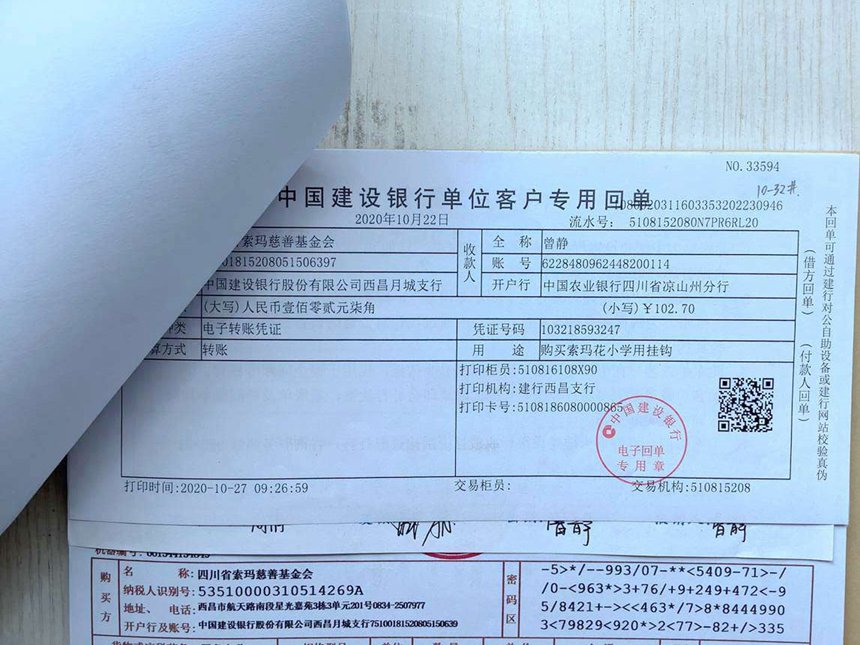 NO.33594
10-32#
中国建设银行单位客户专用回单
2020年10月22日
流水号: 5108152080N7PR6RL20
索玛慈善基金会
收款人
全 称 曾静
01815208051506397
账 号 6228480962448200114
中国建设银行股份有限公司西昌月城支行
开户行 中国农业银行四川省凉山州分行
(大写)人民币壹佰零贰元柒角
(小写)¥102.70
种类 电子转账凭证
凭证号码 103218593247
算方式 转账
用 途 购买索玛花小学用挂钩
打印柜员:510816108X90
打印机构:建行西昌支行
打印卡号:5108186080000865
中国建设银行
电子回单
专用章
打印时间:2020-10-27 09:26:59
交易柜员:
交易机构:510815208
本回单可通过建行对公自助设备或建行网站校验真伪
(借方回单)
(付款人回单)
曾静
曾静
机器编号:
购买方
名 称:四川省索玛慈善基金会
纳税人识别号:53510000310514269A
地址、 电话:西昌市航天路南段星光嘉苑3栋3单元201号0834-2507977
开户行及账号:中国建设银行股份有限公司西昌月城支行75100181520805150639
密码区
-5>*/--993/07-**<5409-71>-/
/0-<963*>3+76/+9+249+472<-9
5/8421+-><<463*/7>8*8444990
3<79829<920*>2<77>-82+/>335